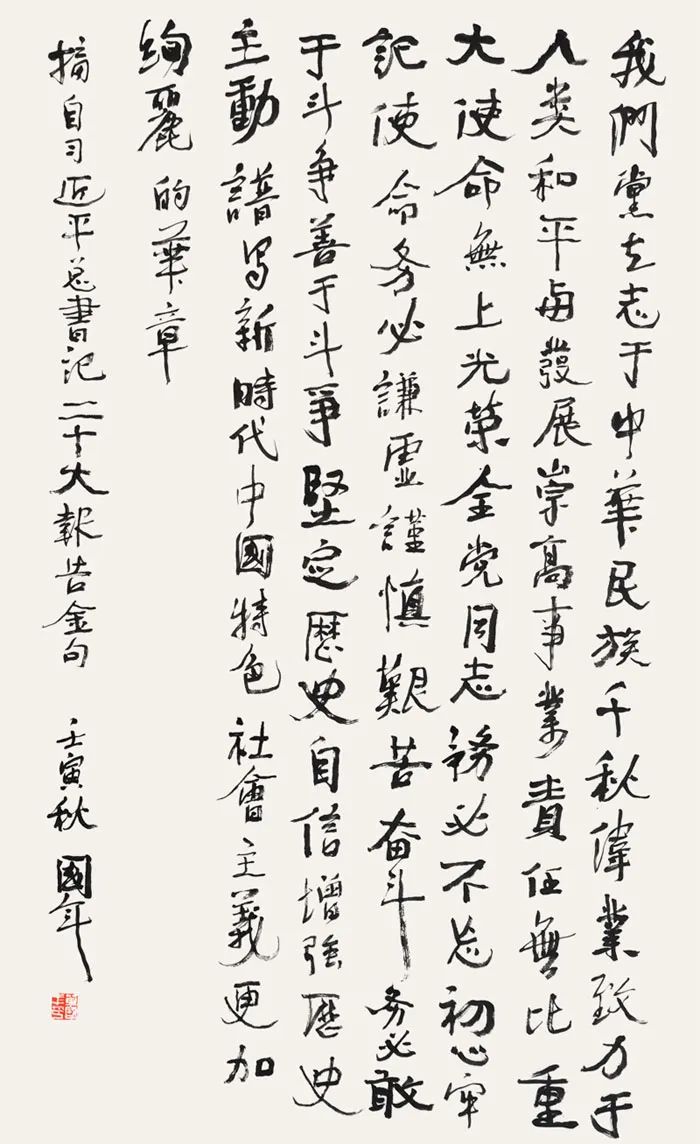 我們黨立志于中華民族千秋偉業致力于
人类和平與發展崇高事業責任無比重
大使命無上光榮全党同志務必不忘初心牢
記使命务必謙虛謹慎艱苦奋斗务必敢
于斗争善于斗爭堅定歷史自信增强歷史
主動譜写新時代中國特色社會主義更加
绚麗的華章
摘自习近平总書記二十大報告金句 壬寅秋 國年